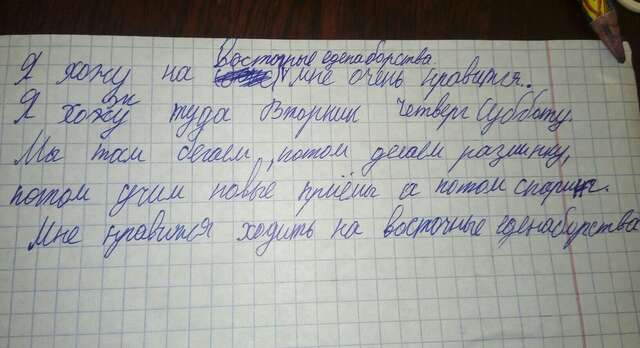 Я хожу на Восточные еденаборства. мне очень нравится.
Я хожу туда Вторник Четверг Субботу.
Мы там бегаем, потом делаем разминку,
потом учим новые приёмы а потом спаринг.
Мне нравится ходить на восточные еденаборства